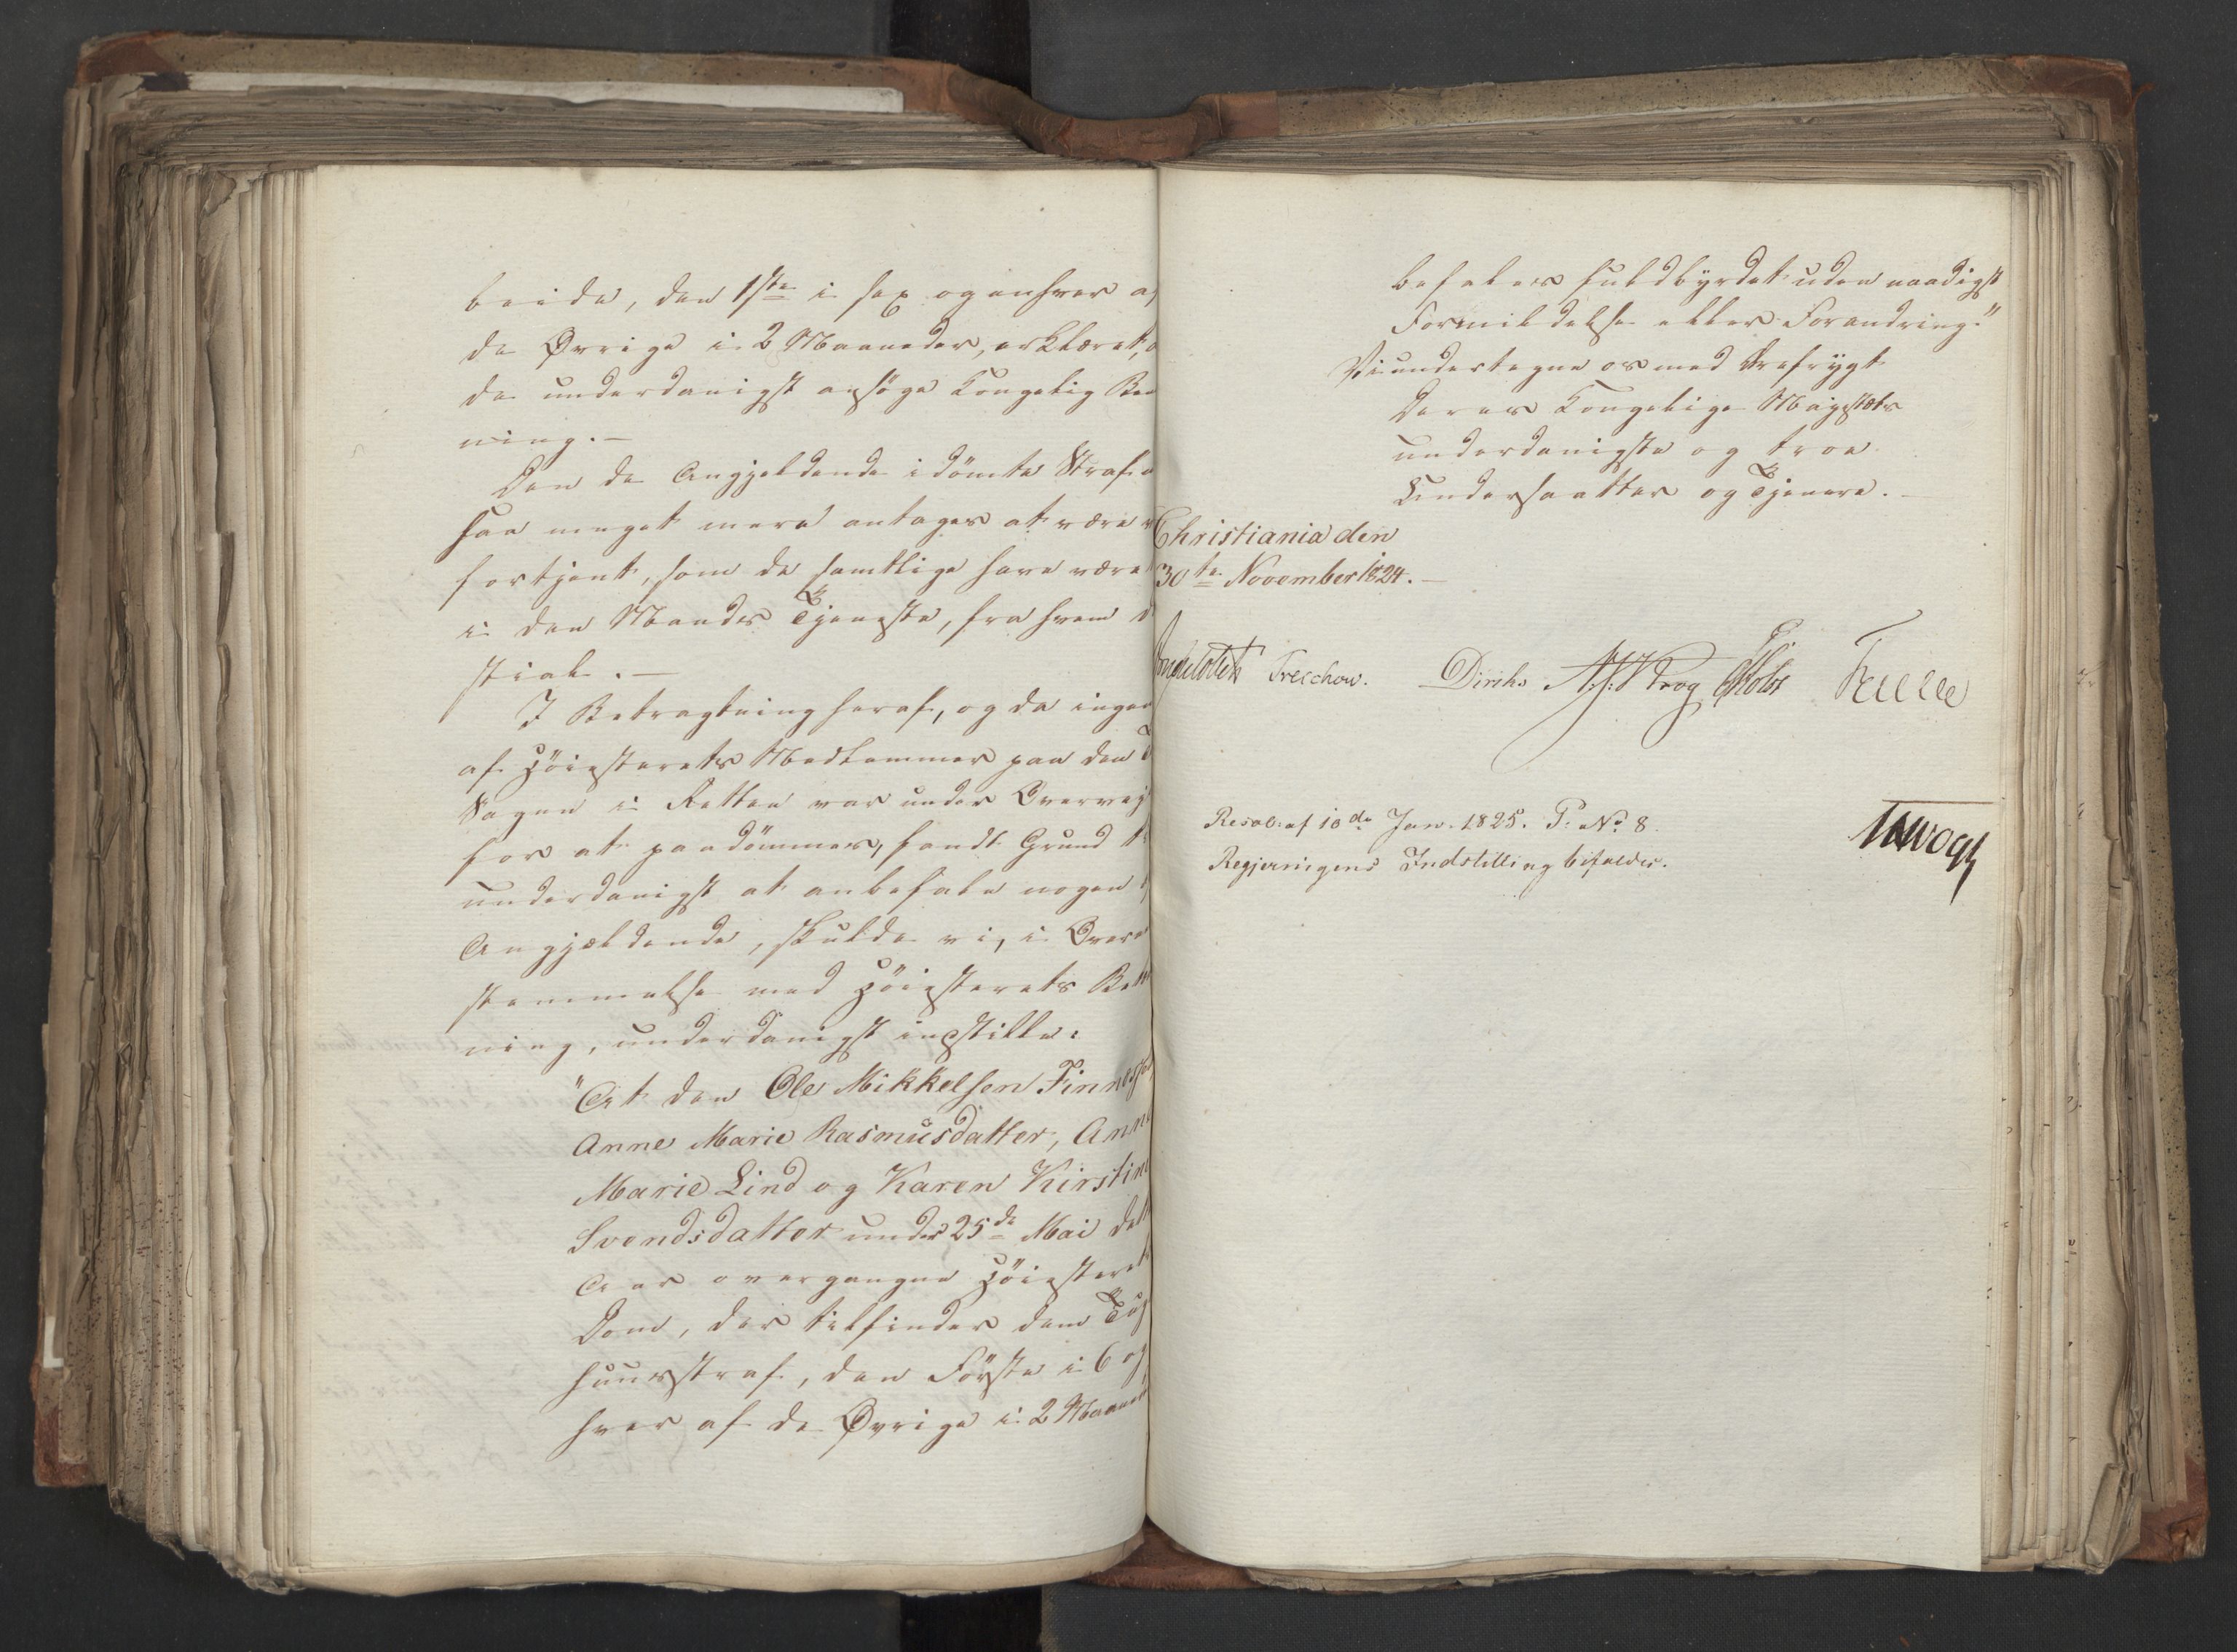 beide, den 1ste i sex og enhver af
de Øvrige i 2 Maaneder, erklæret,
de underdanigst ansöge Kongelig Be
ning.-
Den de Angjeldende idömte Straf
saa meget mere antages at være
fortjent, som de samtlige have været
i den Mands Tjeneste, fra hvem
stial.-
I Betragtning heraf, og da ingen
af Höiesterets Medlemmer paa den
Sagen i Retten var under Overvei
for at paadömmes, fandt Grund
underdanigst at anbefale nogen
Angjældende, skulde vi, i Overe
stemmelse med Höiesterets Be
ning, underdanigst indstille:
"At den Ole Mikkelsen Finness
Anne Marie Rasmusdatter, Anne
Marie Lind og Karen Kirstine
Svendsdatter under 25de Mai dette
Aar overgangne Höiesterets
Dom, der tilfinder dem Tugt
huusstraf, den Förste i 6 og
hver af de Øvrige i 2 Maaned
befales fuldbyrdet uden naadigst
Formildelse eller Forandring."
Vi undertegne os med Ærefrygt
Deres Kongelige Majestæts
underdanigste og troe
Undersaatter og Tjenere.-
Christiania den
30te November 1824.-
Treschow. Diriks Krog Holst
Resol: af 10de Jan. 1825. P. No 8.
Regjeringens Indstilling bifaldes.